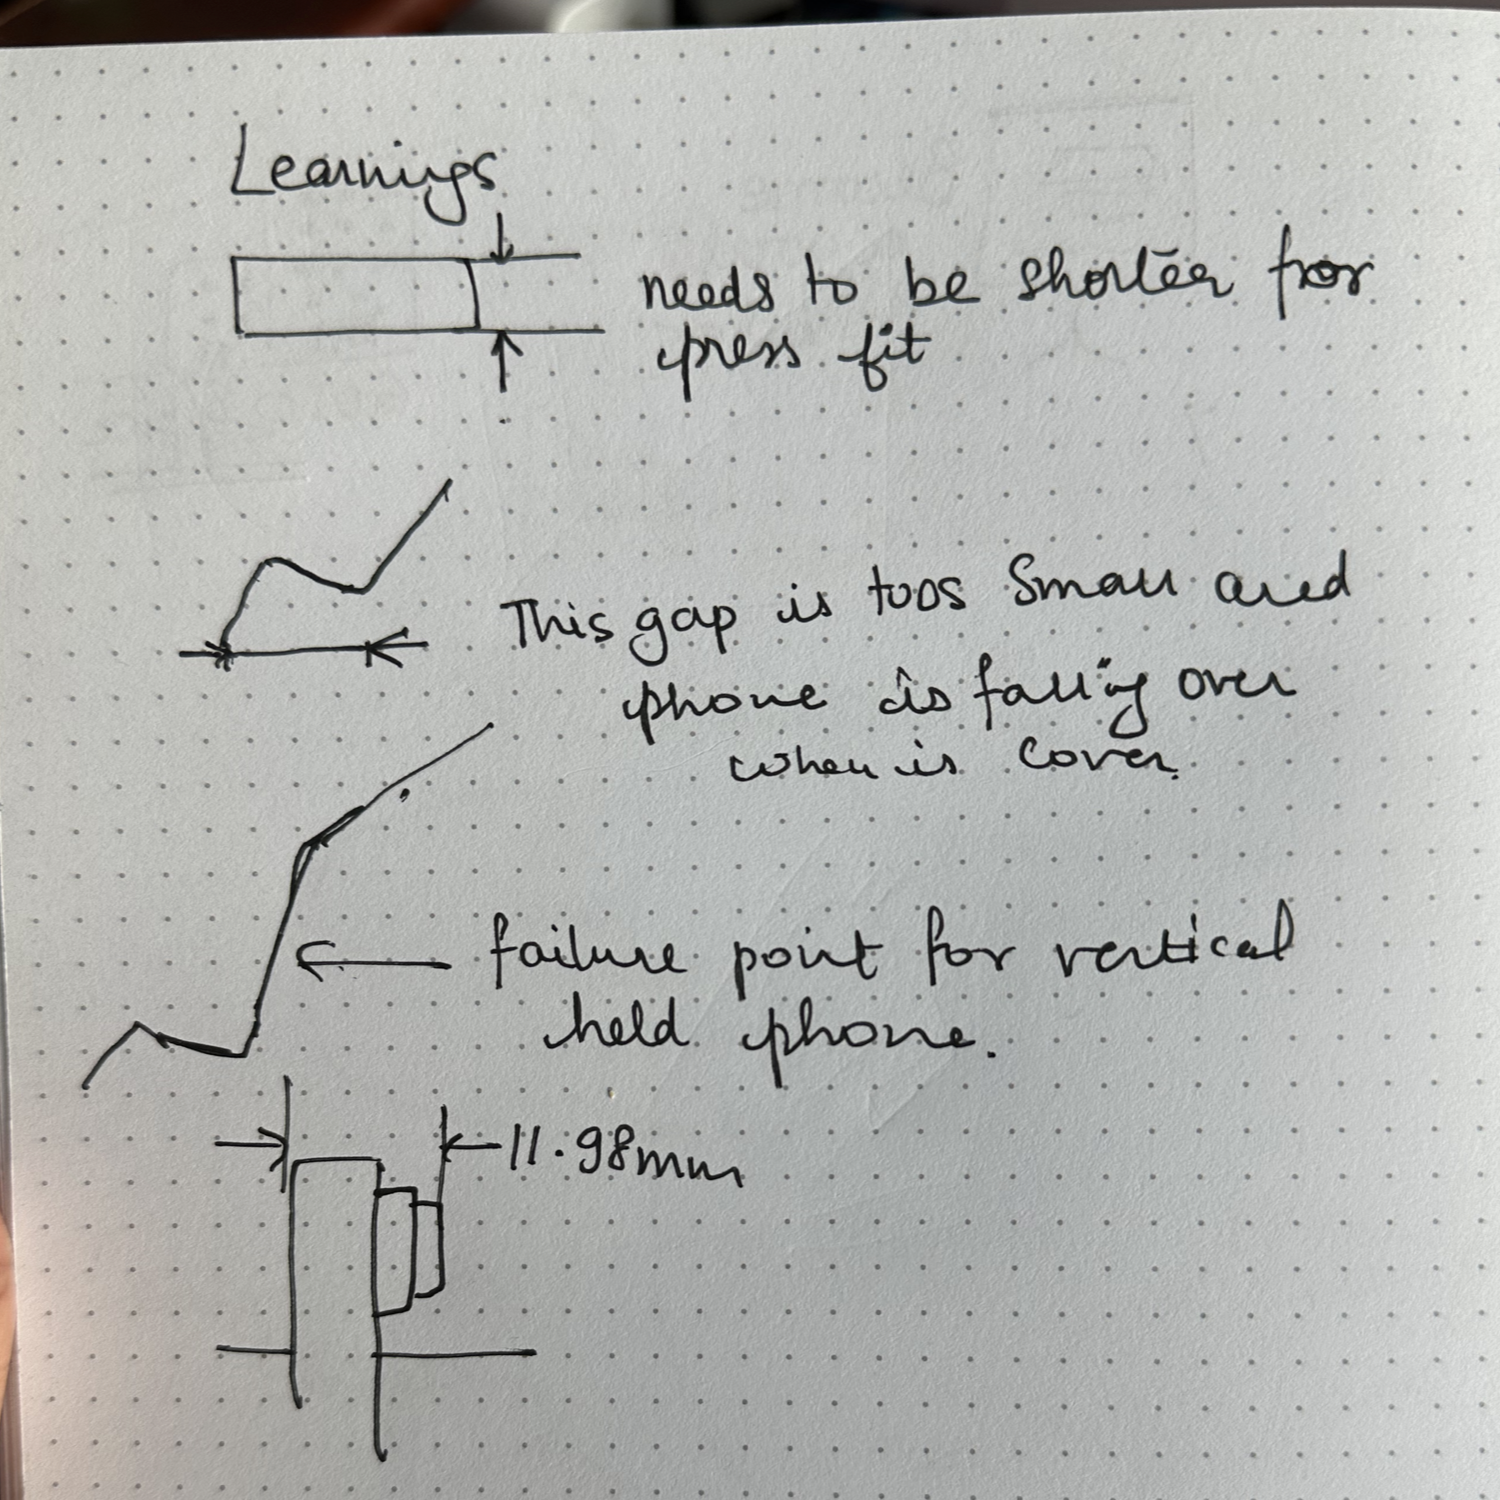 Learnings
needs to be shorter for
press fit
This gap is too small and
phone is falling over
when is cover.
failure point for vertical
held phone.
11.98mm